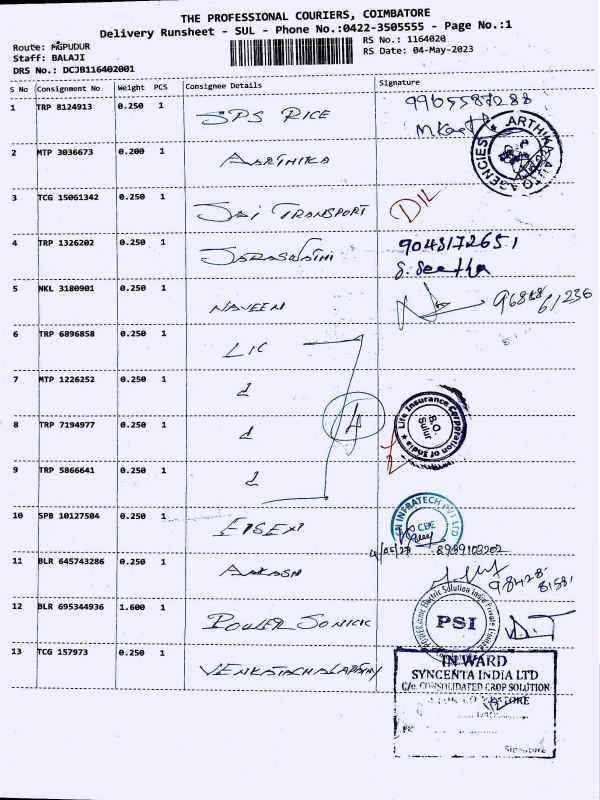 THE PROFESSIONAL COURIERS, COIMBATORE
Delivery Runsheet - SUL - Phone No.:0422-3505555 - Page No.:1
Route: MGPUDUR
RS No.: 1164020
Staff: BALAJI
RS Date: 04-May-2023
DRS No.: DCJB116402001
S No Consignment No Weight PCS Consignee Details Signature
1 TRP 8124913 0.250 1 SPS RICE 9965587288
ARTHINA AUTO AGENCIES
2 MTP 3036673 0.200 1 AARTHIKA
3 TCG 15061342 0.250 1 SAI TRANSPORT D/L
4 TRP 1326202 0.250 1 SARASWATHI 9043172651
S. Seetha
5 NKL 3180901 0.250 1 NAVEEN 96888 61236
6 TRP 6896858 0.250 1 LIC
7 MTP 1226252 0.250 1 d
4
8 TRP 7194977 0.250 1 d
Life Insurance Corporation of India
B.O.
Sulur
9 TRP 5866641 0.250 1 d
10 SPB 10127504 0.250 1
INFRATECH PVT LTD
CBE
8939102202
11 BLR 645743286 0.250 1 AAKASH 98428-
81581
12 BLR 695344936 1.600 1 POWER SONICK
Electric Solution India Private Limited
PSI
13 TCG 157973 0.250 1 VENKATACHALAPATHY
IN WARD
SYNCENTA INDIA LTD
C/o. CONSOLIDATED CROP SOLUTION
Signature